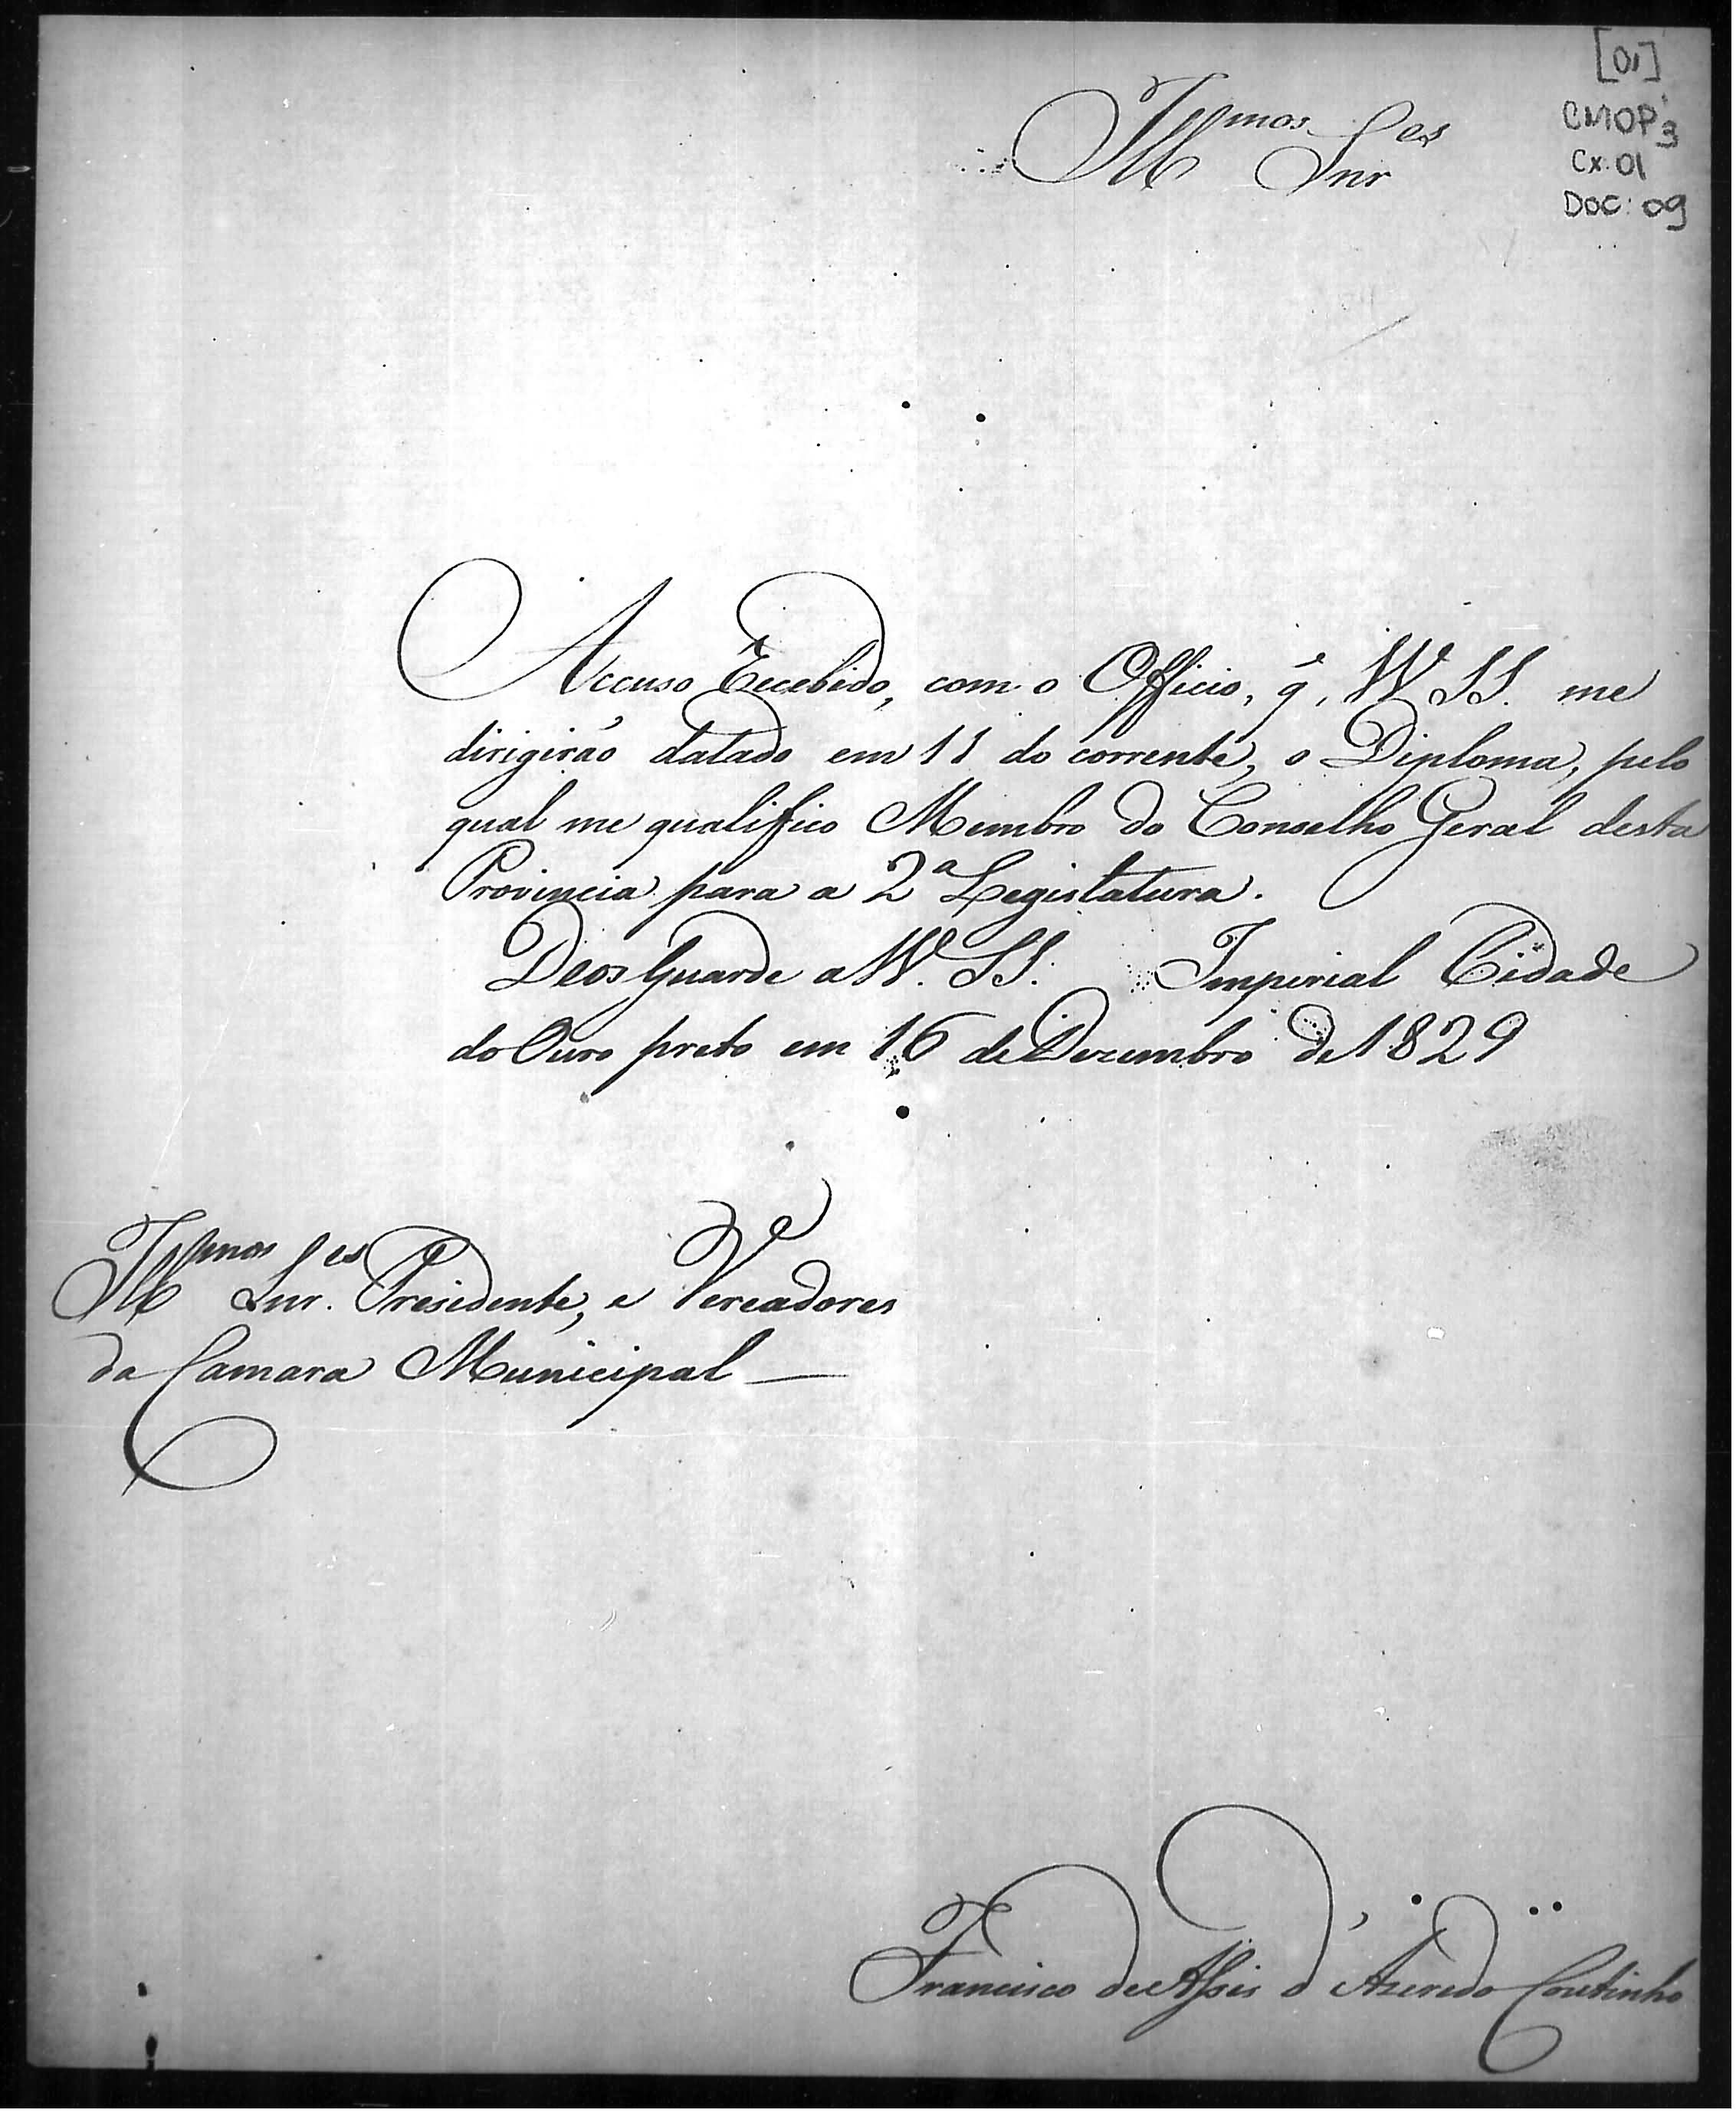 [01]
CMOP³
Cx: 01
DOC: 09
Illmos Snres
Accuso Recebido, com o Officio, q̃, VV. SS. me
dirigirão datado em 11 do corrente, o Diploma, pelo
qual me qualifico Membro do Conselho Geral desta
Provincia para a 2ª Legislatura.
Deos Guarde a VV. SS. Imperial Cidade
do Ouro preto em 16 de Dezembro de 1829
Illmos Snres. Presidente, e Vereadores
da Camara Municipal —
Francisco de Assis d'Azeredo Coutinho